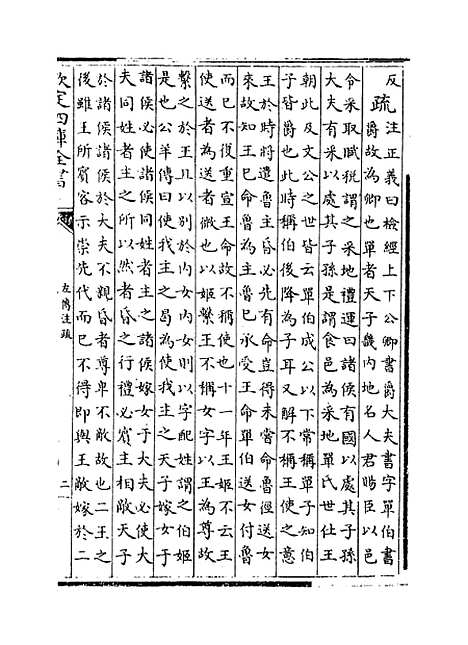 反疏注正義曰檢經上下公卿書爵大夫書字單伯書
爵故為卿也單者天子畿内地名人君賜臣以邑
令采取賦稅謂之采地禮運曰諸侯有國以處其子孫
大夫有采以處其子孫是謂食邑為采地單氏世仕王
朝此及文公之世皆云單伯成公以下常稱單子知伯
子皆爵也此時稱伯後降為子耳又解不稱王使之意
王於時將遣魯主昏必先有命豈得未嘗命魯徑送女
來故知王已命魯為主魯已承受王命單伯送女付魯
而已不復重宣王命故不稱使也十一年王姬不云王
使送者為送者微也以姬繫王不稱女字以王為尊故
繫之於王且以别於内女内女則以字配姓謂之伯姬
是也公羊傳曰使我主之曷為使我主之天子嫁女于
諸侯必使諸侯同姓者主之諸侯嫁女于大夫必使大
夫同姓者主之所以然者昏之行禮必賓主相敵天子
於諸侯諸侯於大夫不親昏者尊卑不敵故也二王之
後雖王所賓客示崇先代而已不得即與王敵嫁於二
欽定四庫全書
左傳注疏
二